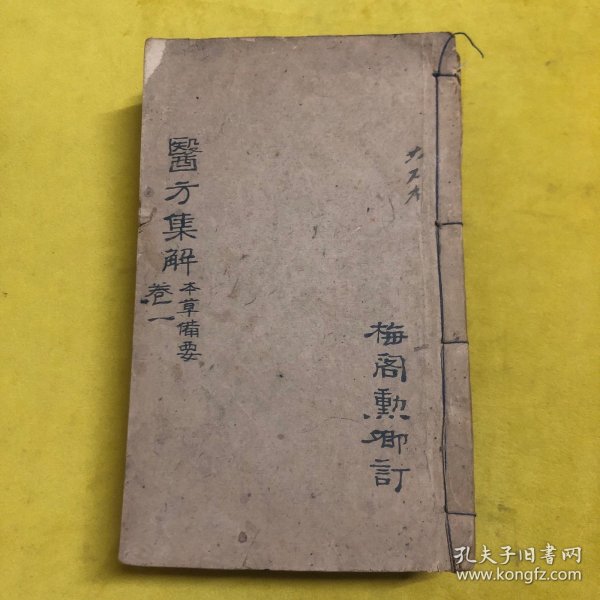 醫方集解
本草備要
卷一
梅阁勲卿訂
孔夫子旧書网
www.kongfz.com